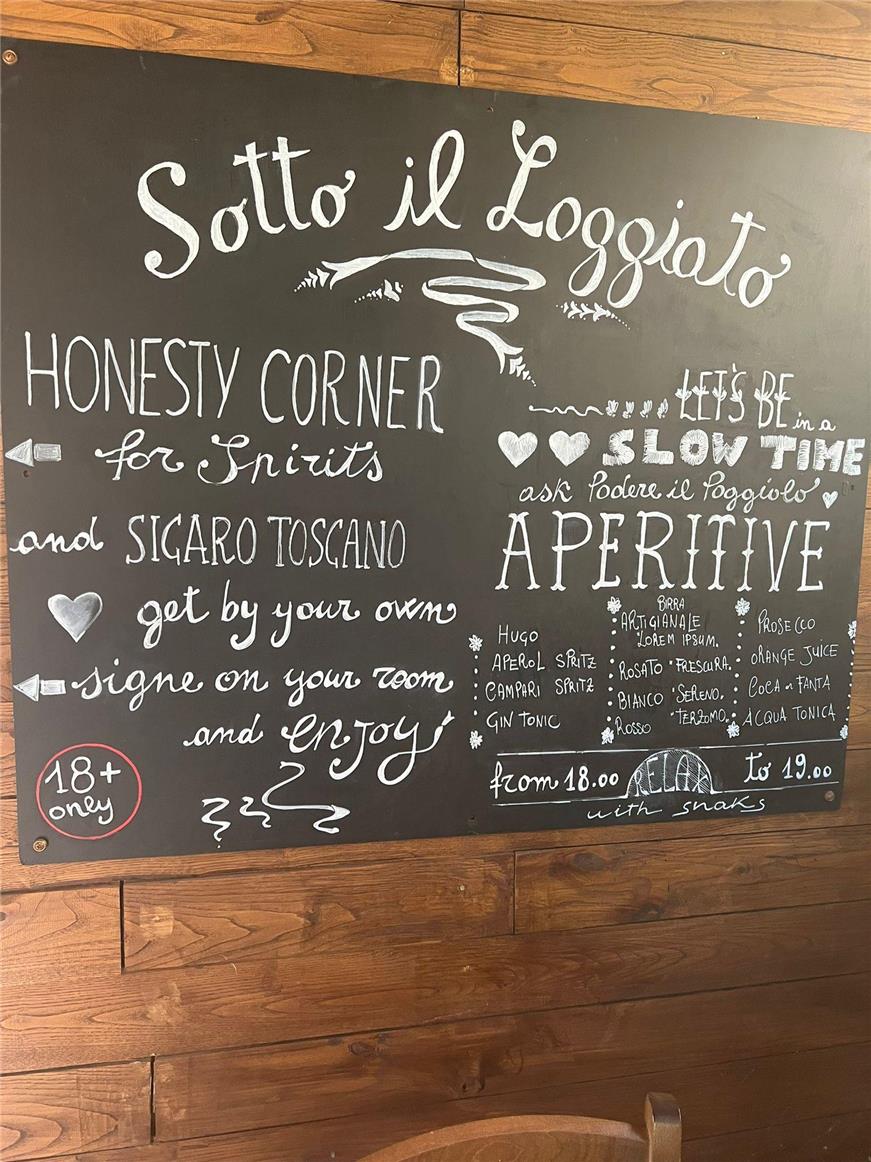 Sotto il Loggiato
HONESTY CORNER
for Spirits
and SIGARO TOSCANO
get by your own
signe on your room
and enjoy
18+
only
LET'S BE in a
SLOW TIME
ask Podere il Poggiolo
APERITIVE
HUGO
APEROL SPRITZ
CAMPARI SPRITZ
GIN TONIC
BIRRA
ARTIGIANALE
"LOREM IPSUM"
ROSATO "FRESCURA"
BIANCO "SERENO"
ROSSO "TERZOMO"
PROSECCO
ORANGE JUICE
COCA n FANTA
ACQUA TONICA
from 18.00 RELAX to 19.00
with snaks